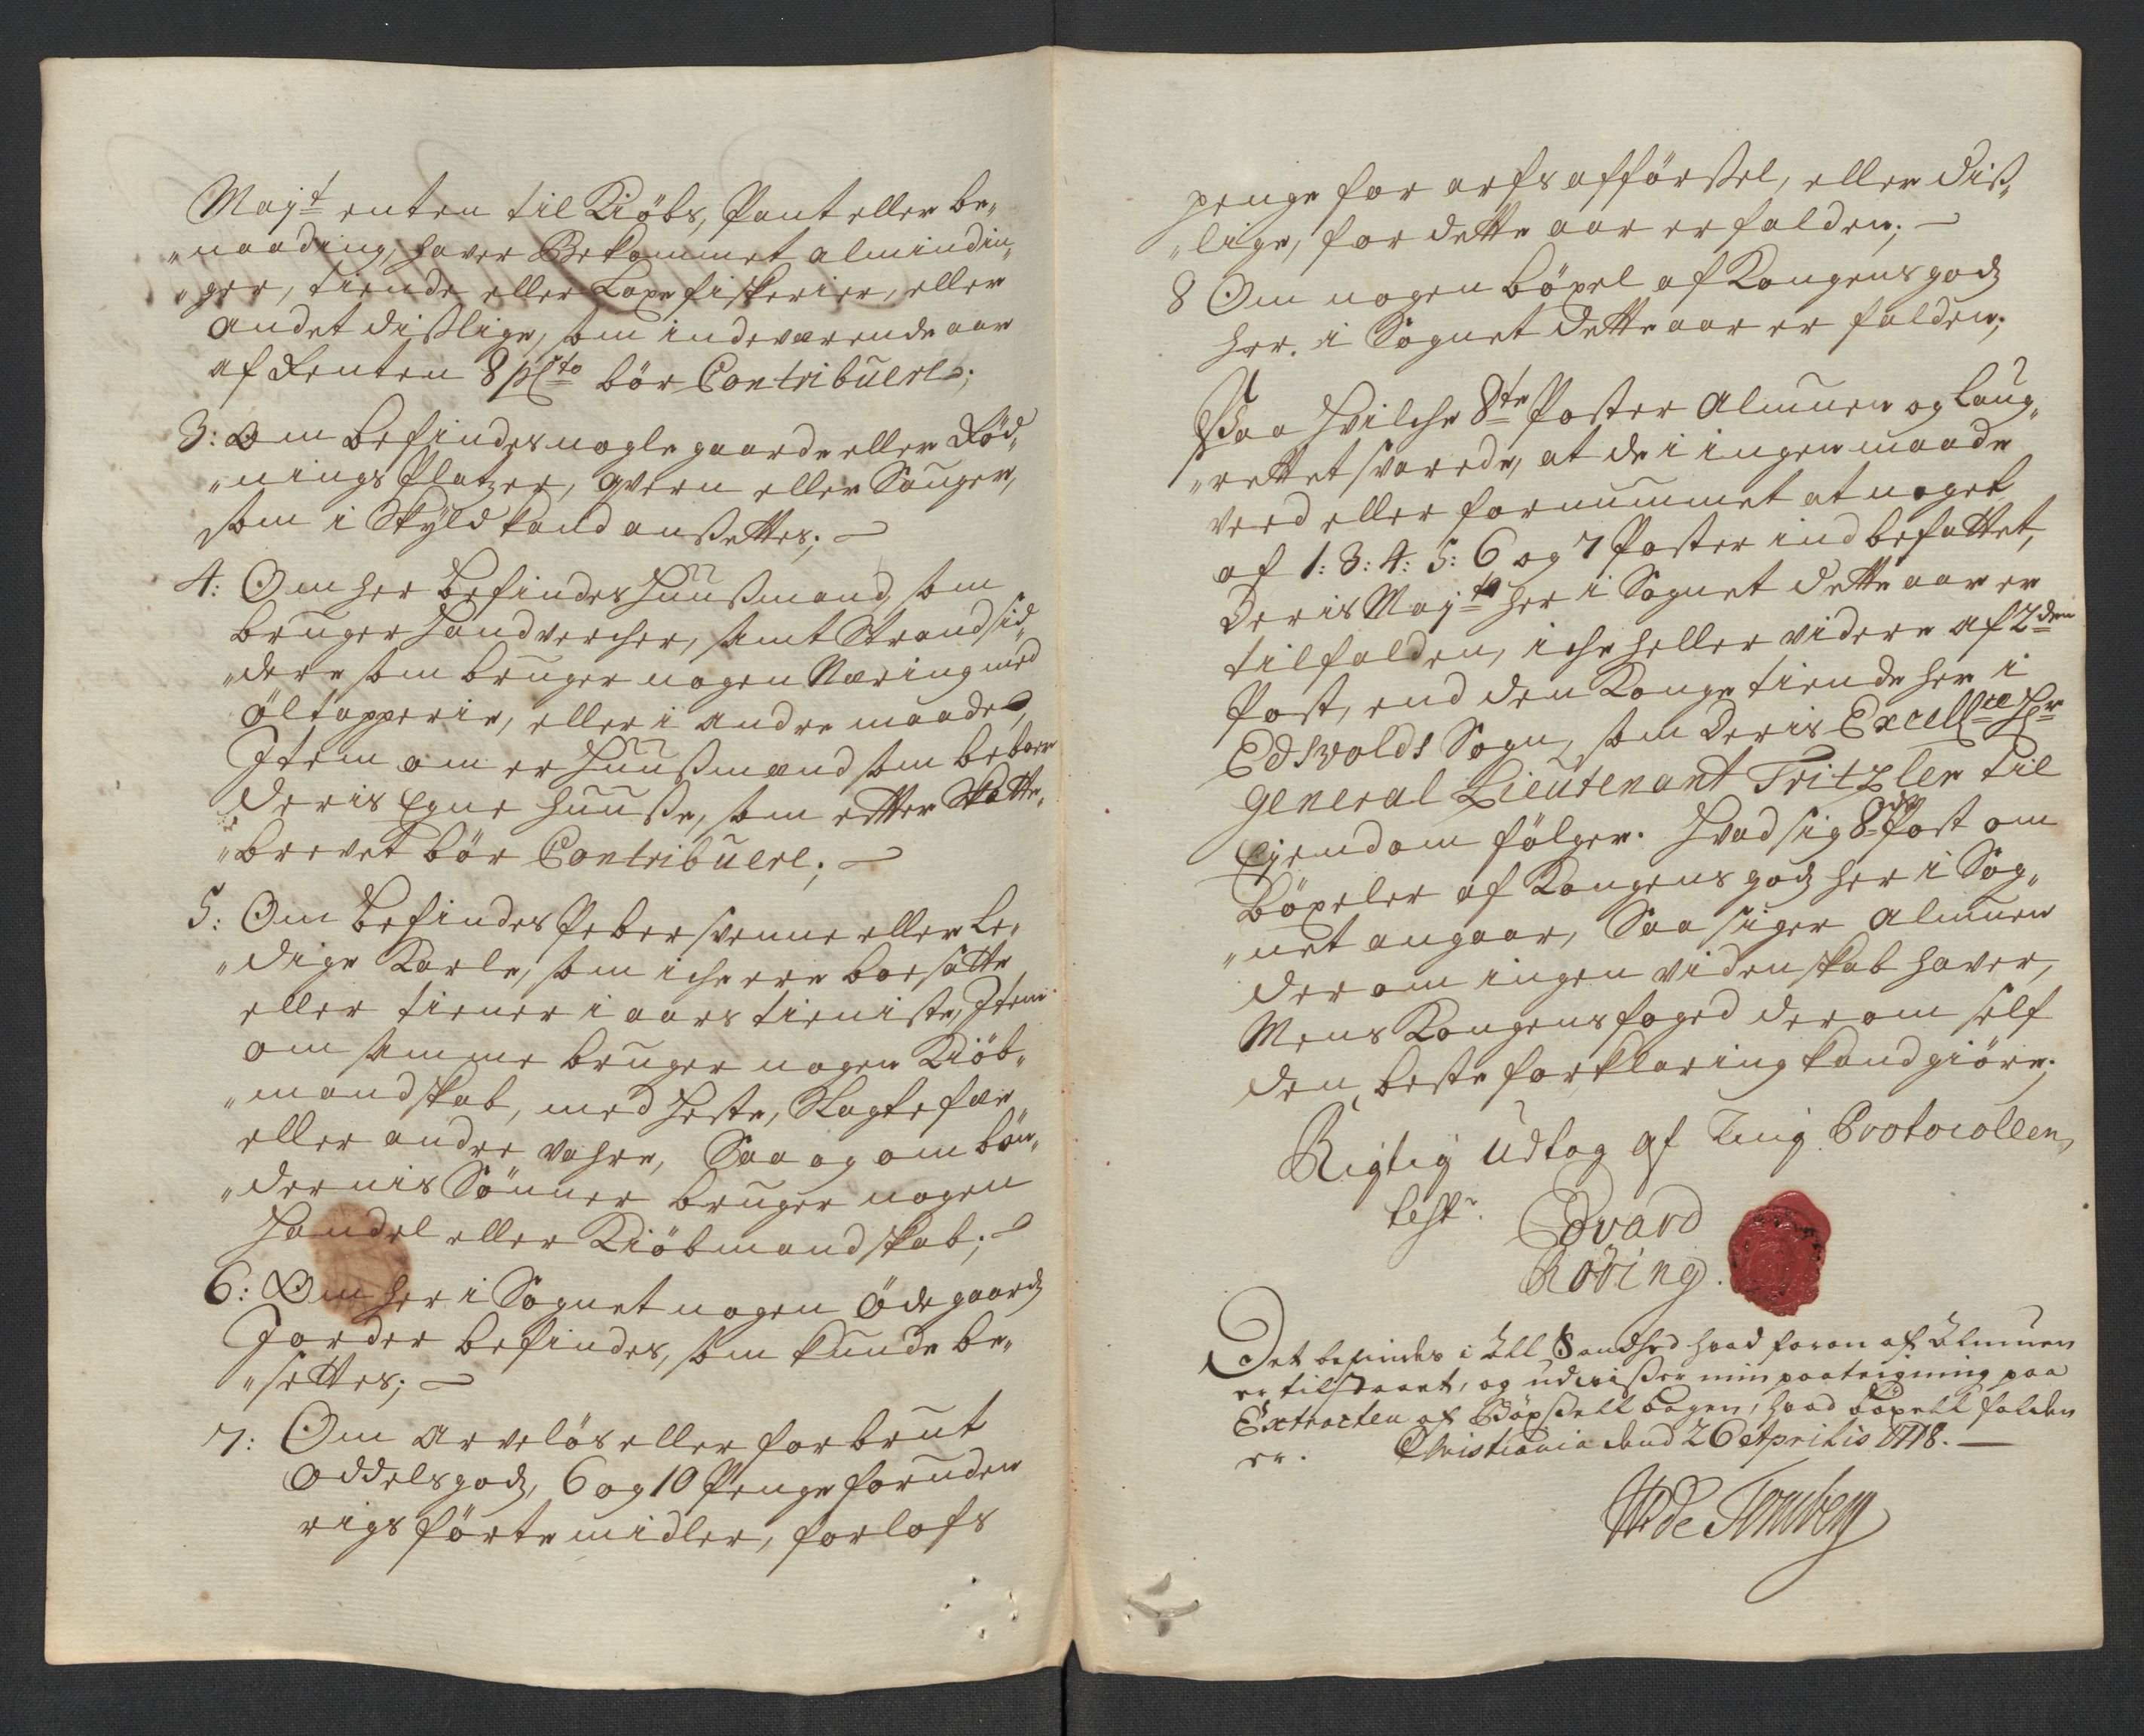 Majt enten til Kiöbs, Pant eller be„
„naading, haver Bekommet almindin„
„ger, tiende eller Laxefiskerier, eller
andet dislige, som indeværende aar
af Renten 8 pCto bör Contribuere;
3: Om befindes nogle gaarde eller Röd„
„nings Platzer, Qvern eller Sauger,
som i Skyld kand ansettes;
4: Om her befindes Huusmænd, som
bruger Handvercher, samt Strandsid„
„dere som bruger nogen Næring med
Öltapperie, eller i andre maader,
Item om er Huusmænd som beboer
deris Egne Huuse, som efter Skatte„
„brevet bör Contribuere;
5: Om befindes Peber Svenne eller Le„
„dige Karle, som iche ere boesatte
eller tiener i aars tieniste, Item
om samme bruger nogen Kiöb„
„mandskab, med Heste, Slagtefæe
eller andre vahre, Saa og om bön„
„dernis Sönner bruger nogen
Handel eller Kiöbmandskab;
6: Om her i Sognet nogen Ödegaardz
Jorder befindes, som kunde be„
„settes;
7: Om arvelös eller forbrut
Oddelsgodz, 6 og 10 Penge foruden
rigs förte midler, forlofs
penge for arfs afförsel, eller dis„
„lige, for dette aar er falden;
8 Om nogen böxel af Kongens godz
her i Sognet dette aar er falden;
Paa Hvilche 8te Poster Almuen og Laug„
„rettet svarede, at de i ingen maade
veed eller fornummet at noget
af 1: 3: 4: 5: 6 og 7 Poster indbefattet,
Deris Mayts her i Sognet dette aar er
tilfalden, iche heller videre af 2den
Post, end den Konge tiende her i
Edswolds Sogn, som Deris Excellce Hr
General Lieutenant Tritzler til
Ejendom fölger. Hvad sig 8de Post om
Böxeler af Kongens godz her i Sog„
„net angaar, Saa siger Almuen
derom ingen videnskab haver,
Mens Kongens foged derom self
den beste forklaring kand giöre;
Rigtig Udtog af Ting Protocollen,
test.
Edvard
Röring.
Det befindes i all Sandhed hvad foran af Almuen
er tilstaaet, og udviser min paateigning paa
Extracten af Böxsell bogen, hvad böxell falden
er. Christiania dend 26 Aprilis 1718.